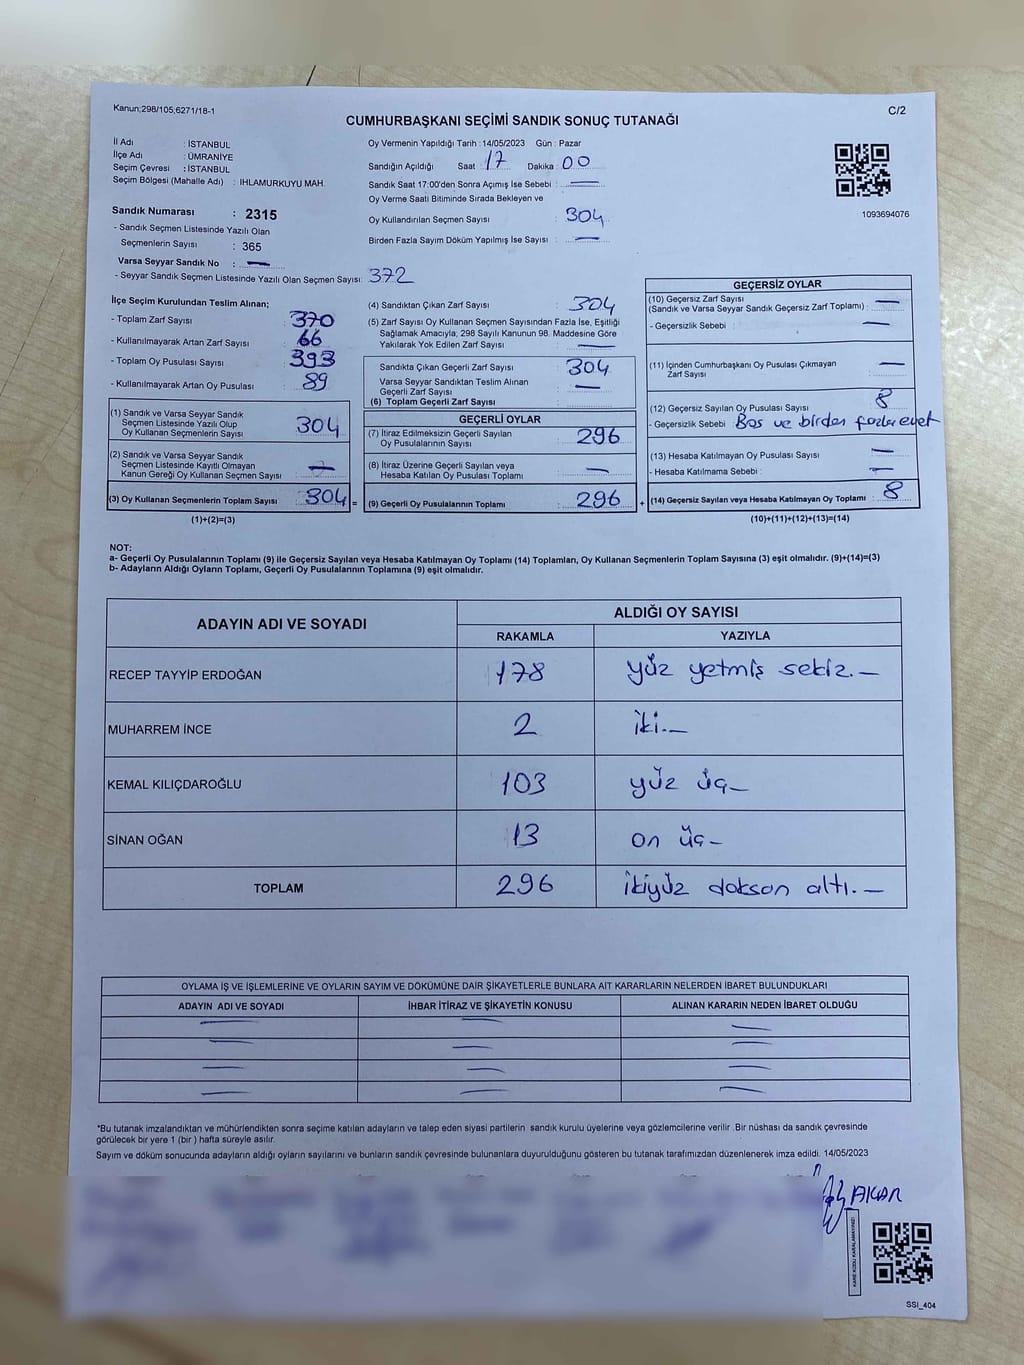 Kanun;298/105,6271/18-1
C/2
CUMHURBAŞKANI SEÇİMİ SANDIK SONUÇ TUTANAĞI
İl Adı : İSTANBUL
İlçe Adı : ÜMRANİYE
Seçim Çevresi : İSTANBUL
Seçim Bölgesi (Mahalle Adı) : IHLAMURKUYU MAH.
Sandık Numarası : 2315
- Sandık Seçmen Listesinde Yazılı Olan
Seçmenlerin Sayısı : 365
Varsa Seyyar Sandık No : —
- Seyyar Sandık Seçmen Listesinde Yazılı Olan Seçmen Sayısı: 372
Oy Vermenin Yapıldığı Tarih : 14/05/2023 Gün : Pazar
Sandığın Açıldığı Saat : 17 Dakika : 00
Sandık Saat 17:00'den Sonra Açımış İse Sebebi : —
Oy Verme Saati Bitiminde Sırada Bekleyen ve
Oy Kullandırılan Seçmen Sayısı : 304
Birden Fazla Sayım Döküm Yapılmış İse Sayısı : —
1093694076
İlçe Seçim Kurulundan Teslim Alınan;
- Toplam Zarf Sayısı : 370
- Kullanılmayarak Artan Zarf Sayısı : 66
- Toplam Oy Pusulası Sayısı : 393
- Kullanılmayarak Artan Oy Pusulası : 89
(1) Sandık ve Varsa Seyyar Sandık
Seçmen Listesinde Yazılı Olup
Oy Kullanan Seçmenlerin Sayısı : 304
(2) Sandık ve Varsa Seyyar Sandık
Seçmen Listesinde Kayıtlı Olmayan
Kanun Gereği Oy Kullanan Seçmen Sayısı : —
(3) Oy Kullanan Seçmenlerin Toplam Sayısı : 304 =
(1)+(2)=(3)
(4) Sandıktan Çıkan Zarf Sayısı : 304
(5) Zarf Sayısı Oy Kullanan Seçmen Sayısından Fazla İse, Eşitliği
Sağlamak Amacıyla, 298 Sayılı Kanunun 98. Maddesine Göre
Yakılarak Yok Edilen Zarf Sayısı : —
Sandıkta Çıkan Geçerli Zarf Sayısı : 304
Varsa Seyyar Sandıktan Teslim Alınan
Geçerli Zarf Sayısı : —
(6) Toplam Geçerli Zarf Sayısı :
GEÇERLİ OYLAR
(7) İtiraz Edilmeksizin Geçerli Sayılan
Oy Pusulalarının Sayısı : 296
(8) İtiraz Üzerine Geçerli Sayılan veya
Hesaba Katılan Oy Pusulası Toplamı : —
(9) Geçerli Oy Pusulalarının Toplamı : 296 +
GEÇERSİZ OYLAR
(10) Geçersiz Zarf Sayısı
(Sandık ve Varsa Seyyar Sandık Geçersiz Zarf Toplamı) : —
- Geçersizlik Sebebi : —
(11) İçinden Cumhurbaşkanı Oy Pusulası Çıkmayan
Zarf Sayısı : —
(12) Geçersiz Sayılan Oy Pusulası Sayısı : 8
- Geçersizlik Sebebi : Boş ve birden fazla evet
(13) Hesaba Katılmayan Oy Pusulası Sayısı : —
- Hesaba Katılmama Sebebi : —
(14) Geçersiz Sayılan veya Hesaba Katılmayan Oy Toplamı : 8
(10)+(11)+(12)+(13)=(14)
NOT:
a- Geçerli Oy Pusulalarının Toplamı (9) ile Geçersiz Sayılan veya Hesaba Katılmayan Oy Toplamı (14) Toplamları, Oy Kullanan Seçmenlerin Toplam Sayısına (3) eşit olmalıdır. (9)+(14)=(3)
b- Adayların Aldığı Oyların Toplamı, Geçerli Oy Pusulalarının Toplamına (9) eşit olmalıdır.
ADAYIN ADI VE SOYADI ALDIĞI OY SAYISI
RAKAMLA YAZIYLA
RECEP TAYYİP ERDOĞAN 178 yüz yetmiş sekiz.—
MUHARREM İNCE 2 iki.—
KEMAL KILIÇDAROĞLU 103 yüz üç—
SİNAN OĞAN 13 on üç—
TOPLAM 296 ikiyüz doksan altı.—
OYLAMA İŞ VE İŞLEMLERİNE VE OYLARIN SAYIM VE DÖKÜMÜNE DAİR ŞİKAYETLERLE BUNLARA AİT KARARLARIN NELERDEN İBARET BULUNDUKLARI
ADAYIN ADI VE SOYADI İHBAR İTİRAZ VE ŞİKAYETİN KONUSU ALINAN KARARIN NEDEN İBARET OLDUĞU
*Bu tutanak imzalandıktan ve mühürlendikten sonra seçime katılan adayların ve talep eden siyasi partilerin sandık kurulu üyelerine veya gözlemcilerine verilir .Bir nüshası da sandık çevresinde
görülecek bir yere 1 (bir ) hafta süreyle asılır.
Sayım ve döküm sonucunda adayların aldığı oyların sayılarını ve bunların sandık çevresinde bulunanlara duyurulduğunu gösteren bu tutanak tarafımızdan düzenlenerek imza edildi. 14/05/2023
AKAR
KARE KODU KARALAMAYINIZ!
SSI_404